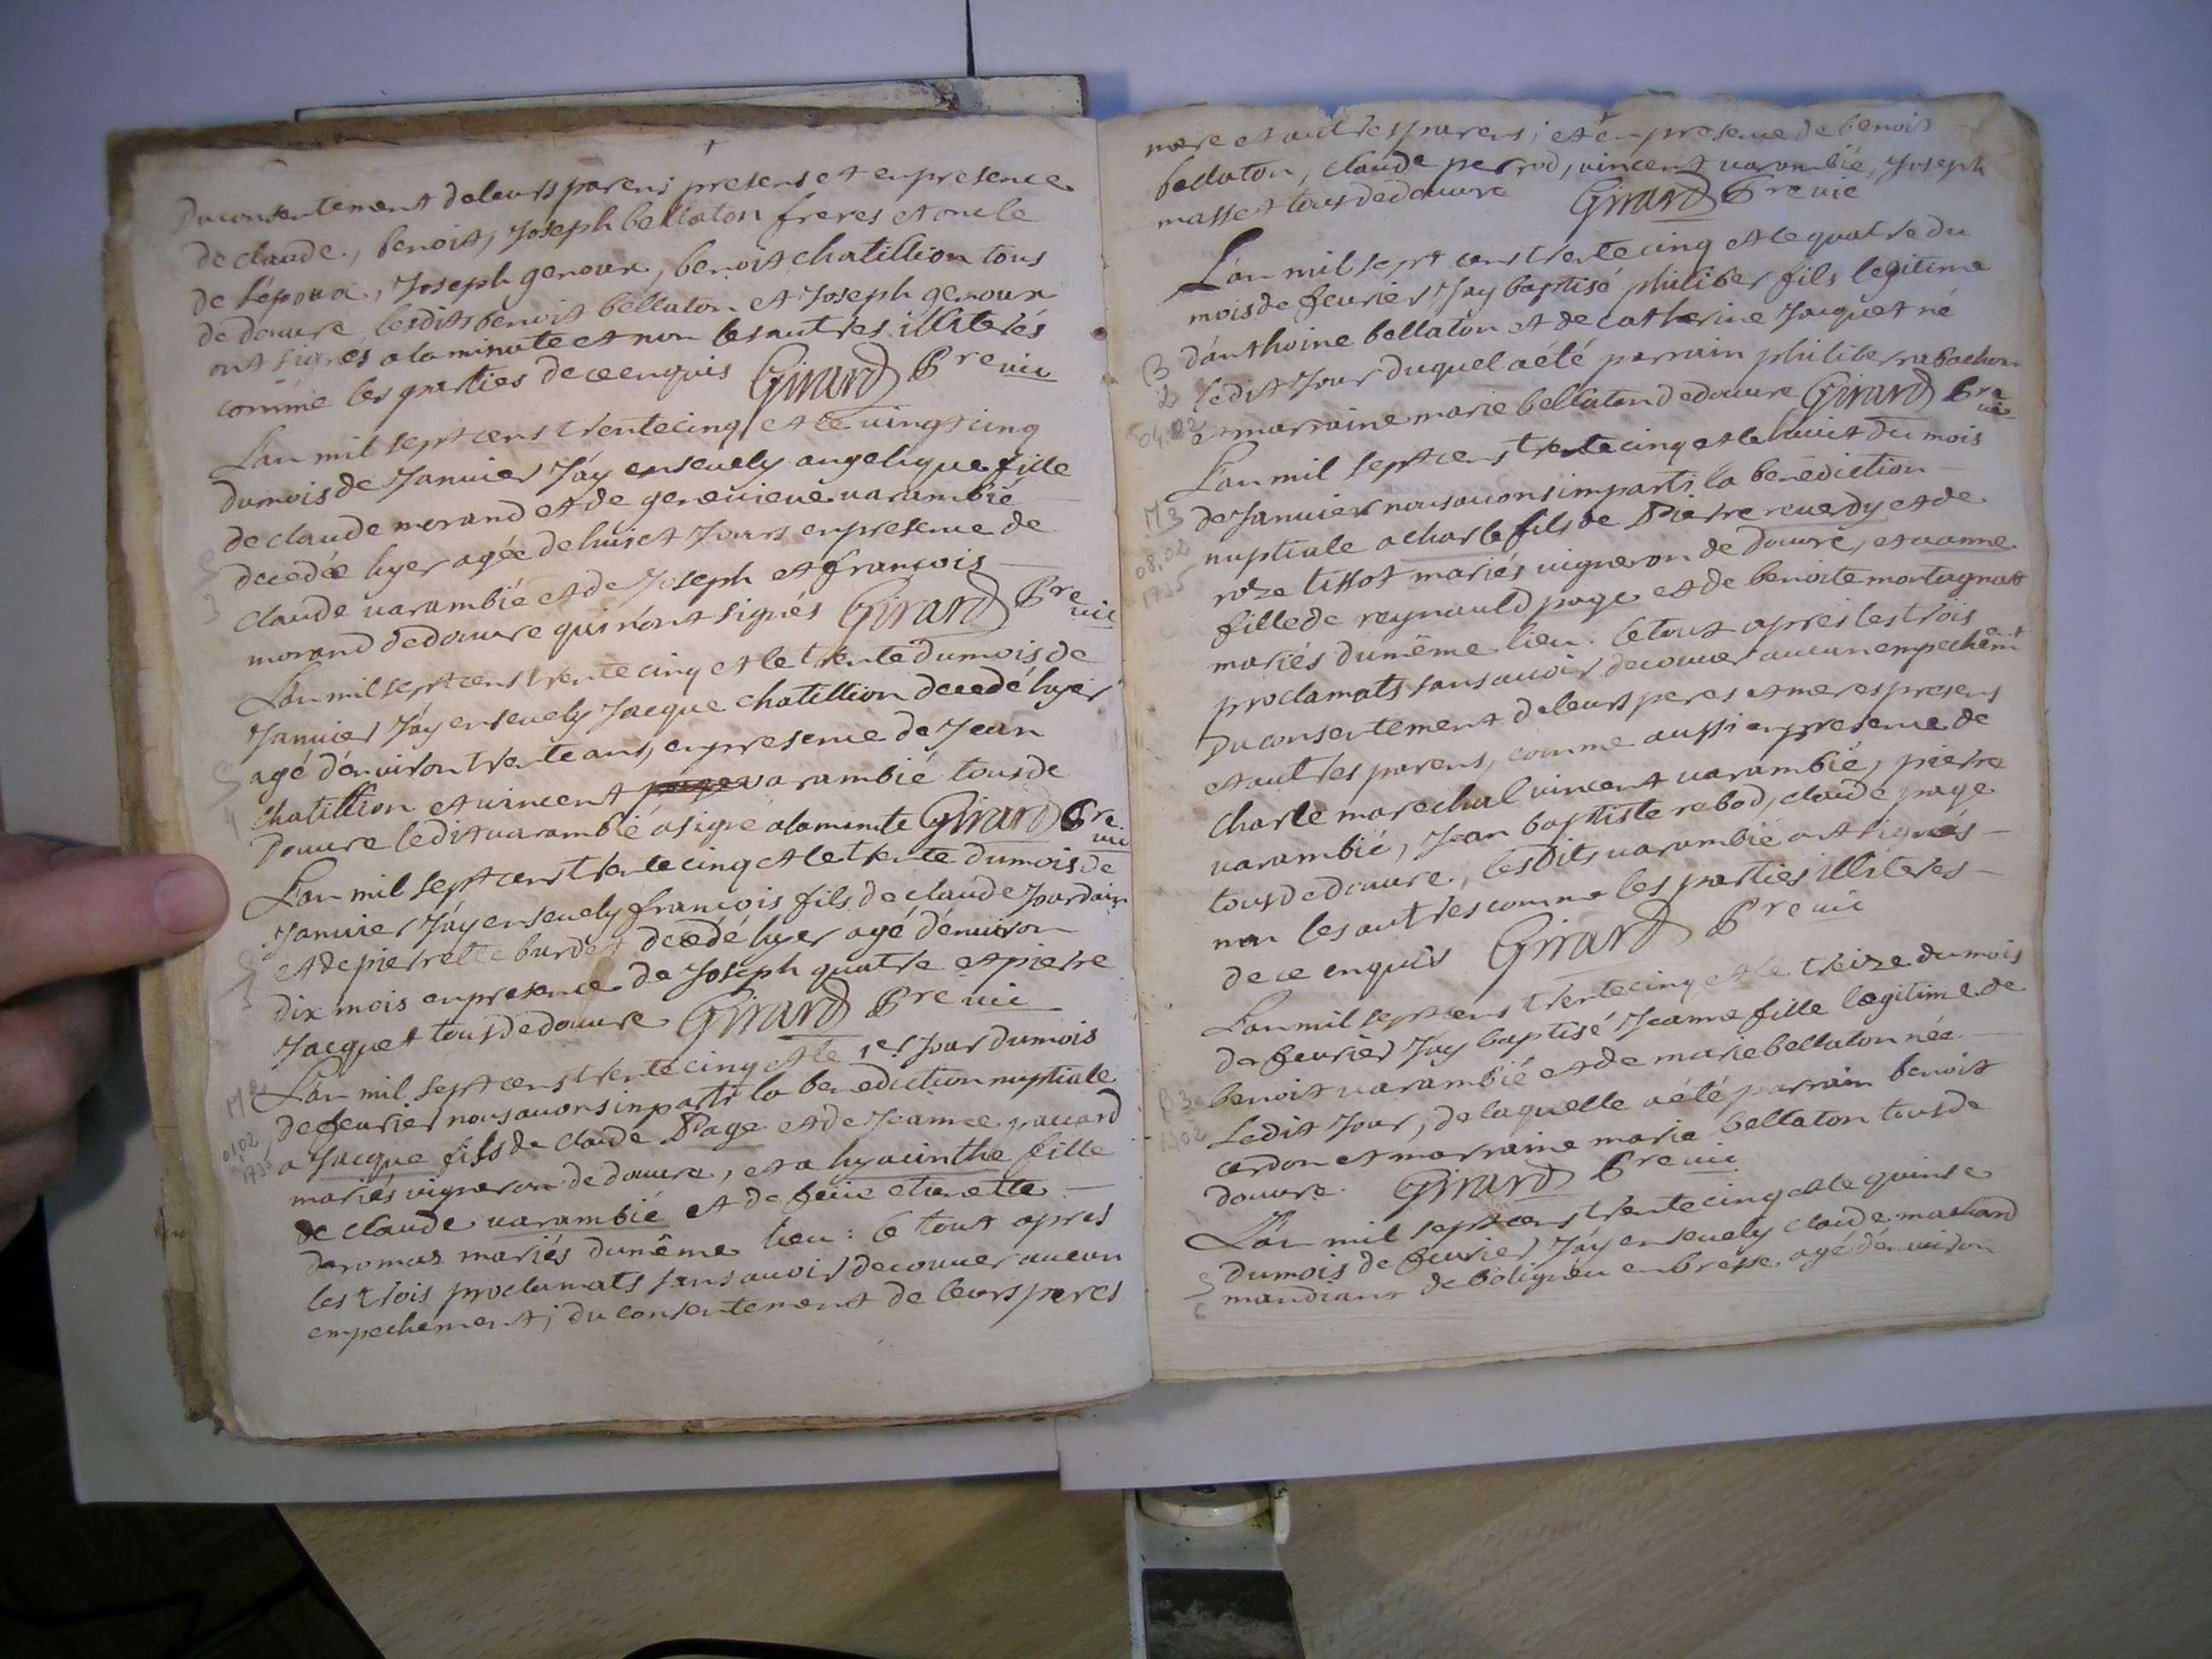 Du consentement de leurs parens presens et en presence
de claude, benoit, Joseph bellaton freres et oncle
de L'epoux, Joseph genoux, benoit chatillion tous
de douvre lesdits benoit bellaton et Joseph genoux
ont signés a la minute et non les autres illiterés
comme les parties de ce enquis Girard Pre vic
L'an mil sept cens trente cinq et le vingt cinq
du mois de Janvier J'ay ensevely angelique fille
de claude morand et de genevieve varambié
decedée hyer agée de huict Jours en presence de
claude varambié et de Joseph et françois
morand de douvre qui n'ont signés Girard Pre vic
S
3
L'an mil sept cens trente cinq et le trente du mois de
Janvier J'ay ensevely Jacque chatillion decedé hyer
agé d'environ trente ans, en presence de Jean
chatillion et vincent varambié tous de
Douvre ledit varambié a signé a la minute Girard Pre vic
S
4
L'an mil sept cens trente cinq et le trente du mois de
Janvier J'ay ensevely françois fils de claude Jourdain
et de pierrette burdet decedé hyer agé d'environ
dix mois en presence de Joseph quatre et pierre
Jacquet tous de douvre Girard Pre vic
S
5
L'an mil sept cens trente cinq et le 1er Jour du mois
de fevrier nous avons imparti la benediction nuptiale
M 2
01.02
1735
a Jacque fils de claude Page et de Jeanne
mariés vigneron de douvre, et a hyacinthe fille
de claude varambié et de feüe etienette
deromas mariés du même lieu: le tout apres
les trois proclamats sans avoir decouver aucun
empechement; du consentement de leurs peres
mere et autres parens; et en presence de benoit
bellaton, claude perrod, vincent varambié, Joseph
masset tous de douvre Girard Pre vic
L'an mil sept cens trente cinq et le quatre du
mois de fevrier J'ay baptisé philiber fils legitime
d'anthoine bellaton et de catherine Jacquet né
ledit Jour duquel a été parrain philiber rabachon
et marraine marie bellaton de douvre Girard Pre vic
B
2
04.02
L'an mil sept cens trente cinq et le huict du mois
de Janvier nous avons imparti la benediction
nuptiale a charle fils de Pierre reverdy et de
roze tissot mariés vigneron de Douvre, et a anne
fille de reynauld page et de benoite montagnat
mariés du même lieu: le tout apres les trois
proclamats sans avoir decouver aucun empechemt
Du consentement de leurs peres et meres presens
et autres parens, comme aussi en presence de
charle marechal vincent varambié, pierre
varambié, Jean baptiste rebod, claude page
tous de douvre, lesdits varambié ont signés
non les autres comme les parties illiterés
de ce enquis Girard Pre vic
M 3
08.02
1735
L'an mil sept cens trente cinq et le treize du mois
de fevrier J'ay baptisé Jeanne fille legitime de
benoit varambié et de marie bellaton née
Ledit Jour, de laquelle a été parrain benoit
cardon et marraine marie bellaton tous de
douvre. Girard Pre vic
B 3
L'an mil sept cens trente cinq et le quinse
du mois de fevrier J'ay ensevely claude
mandiant de en bresse agé d'environ
S
6